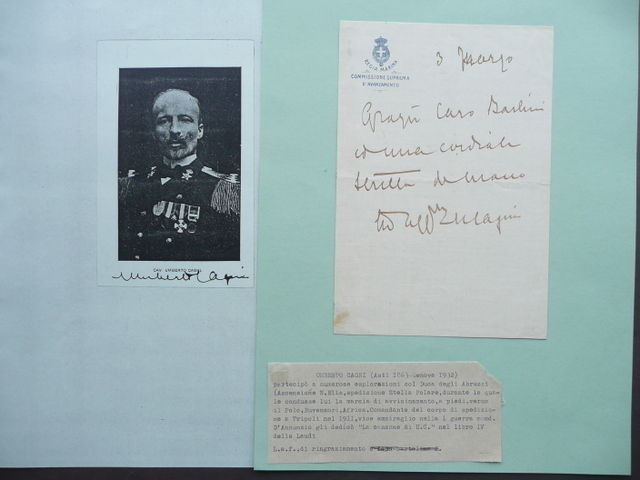 CAV. UMBERTO CAGNI
Umberto Cagni
REGIA MARINA
COMMISSIONE SUPREMA
D'AVANZAMENTO
3 Marzo
Grazie Caro Barbini
ed una cordiale
stretta de mano
Cagni
UMBERTO CAGNI (Asti 186 -Genova 1932)
partecipò a numerose esplorazioni col Duca degli Abruzzi
(Ascensione S.Elia,spedizione Stella Polare,durante la qua
le condusse lui la marcia di avvicinamento,a piedi,verso
il Polo,Ruwenzori,Africa.Comandante del corpo di spedizio
ne a Tripoli nel 1911,vice ammiraglio nella 1 guerra mond.
D'Annunzio gli dedicò "La canzone di U.C." nel libro IV
delle Laudi
L.a.f..di ringraziamento